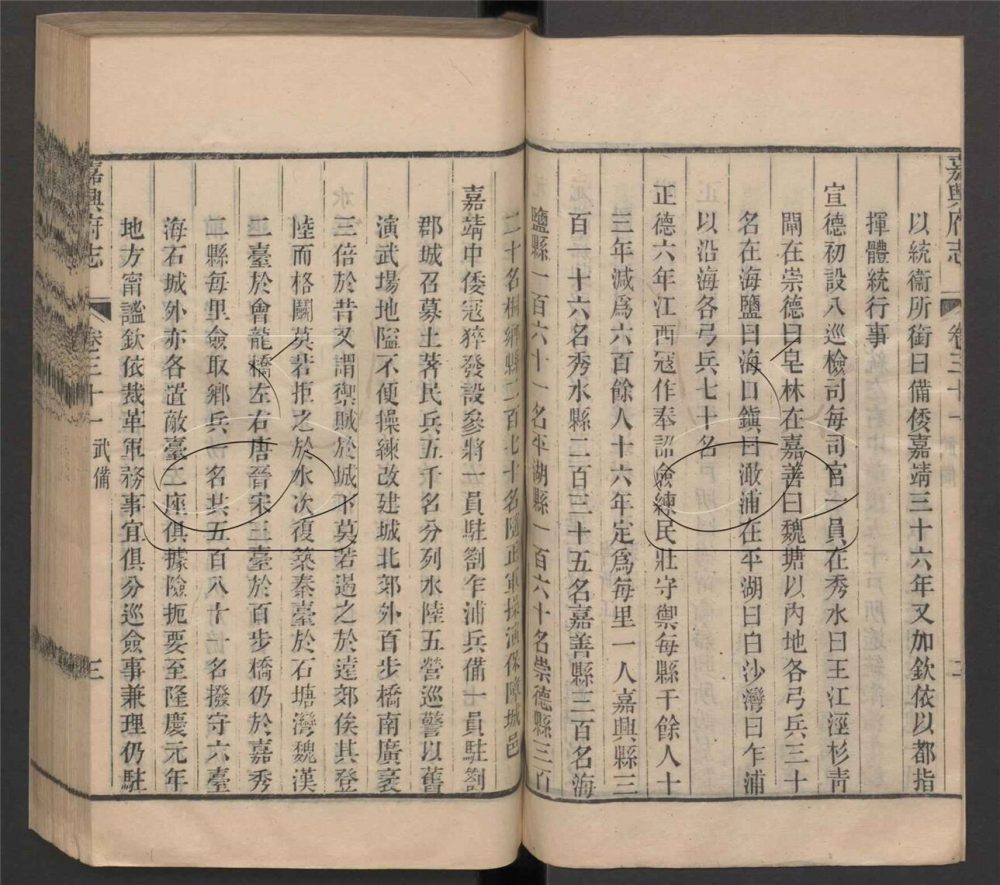 嘉興府志
卷三十一
以統衞所銜曰備倭嘉靖三十六年又加欽依以都指
揮體統行事
宣德初設八巡檢司每司官一員在秀水曰王江涇杉靑
閘在崇德曰皂林在嘉善曰魏塘以內地各弓兵三十
名在海鹽曰海口鎭曰澉浦在平湖曰白沙灣曰乍浦
以沿海各弓兵七十名
正德六年江西冦作奉詔僉練民壯守禦每縣千餘人十
三年減爲六百餘人十六年定爲每里一人嘉興縣三
百一十六名秀水縣二百三十五名嘉善縣三百名海
鹽縣一百六十一名平湖縣一百六十名崇德縣三百
二十名桐鄉縣二百七十名隨正軍操演保障城邑
嘉靖中倭寇猝發設參將一員駐劄乍浦兵備一員駐劄
郡城召募土著民兵五千名分列水陸五營巡警以舊
演武場地隘不便操練改建城北郊外百步橋南廣袤
三倍於昔又謂禦賊於城下莫若遏之於遠郊俟其登
陸而格鬬莫若拒之於水次復築秦臺於石塘灣魏漢
二臺於會龍橋左右唐晉宋三臺於百步橋仍於嘉秀
二縣每里僉取鄉兵名共五百八十一名撥守六臺
海石城外亦各置敵臺二座俱據險扼要至隆慶元年
地方甯謐欽依裁革軍務事宜俱分巡僉事兼理仍駐
嘉興府志
卷三十一
武備
三